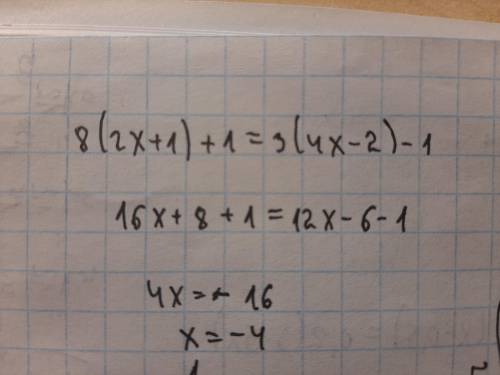 8(2x+1)+1=3(4x-2)-1
16x+8+1=12x-6-1
4x=-16
x=-4